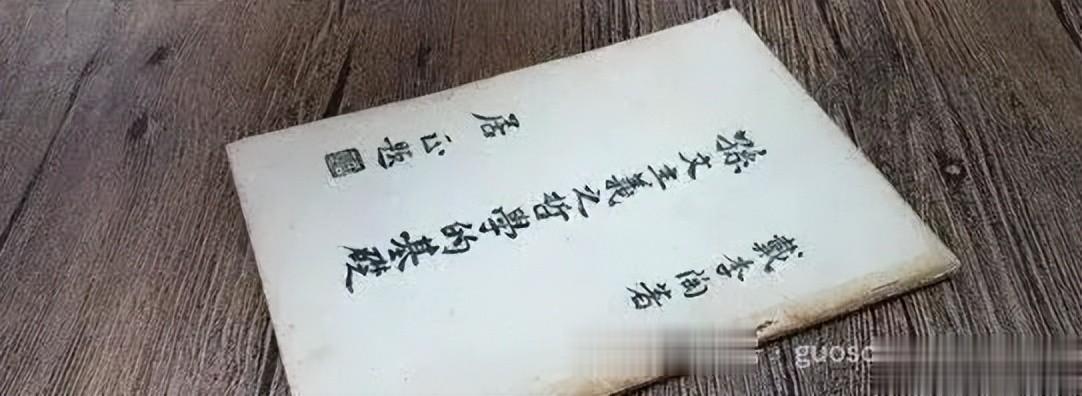 戴季陶著
孫文主義之哲學的基礎
居正題
guosc